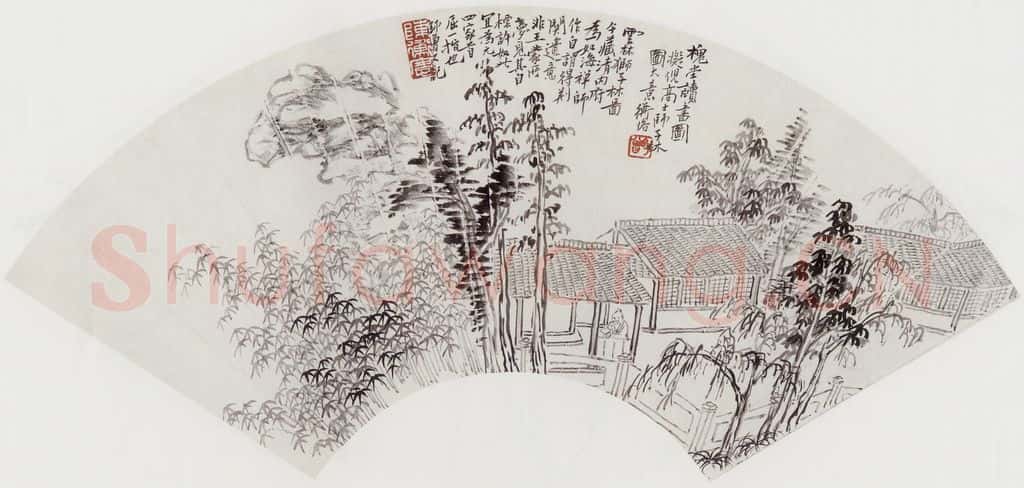 槐堂讀書圖
擬倪高士師子林
圖大意 衡恪
雲林獅子林圖
今藏清內府
為如海禪師
作自謂得荊
關遺意
非王蒙所
夢見其自
標許如此
宜為元
四家首
屈一指也
師曾又記
Shufawang.CN